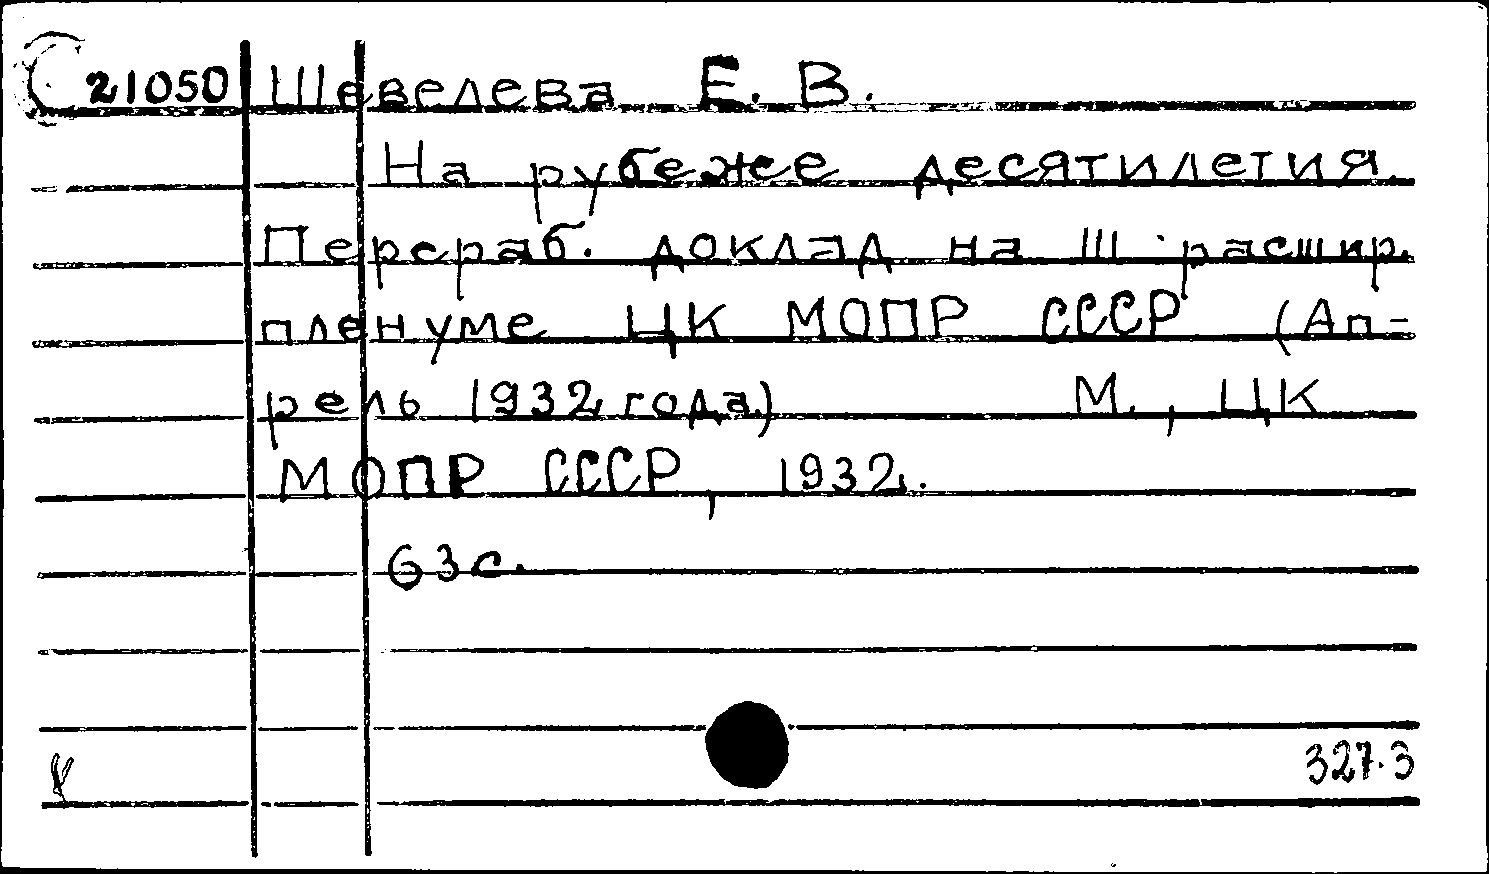 21050 Шевелева Е. В.
На рубеже десятилетия.
Перераб. доклад на III расшир.
пленуме ЦК МОПР СССР (Ап-
рель 1932 года.) М., ЦК
МОПР СССР, 1932.
63с.
327.3